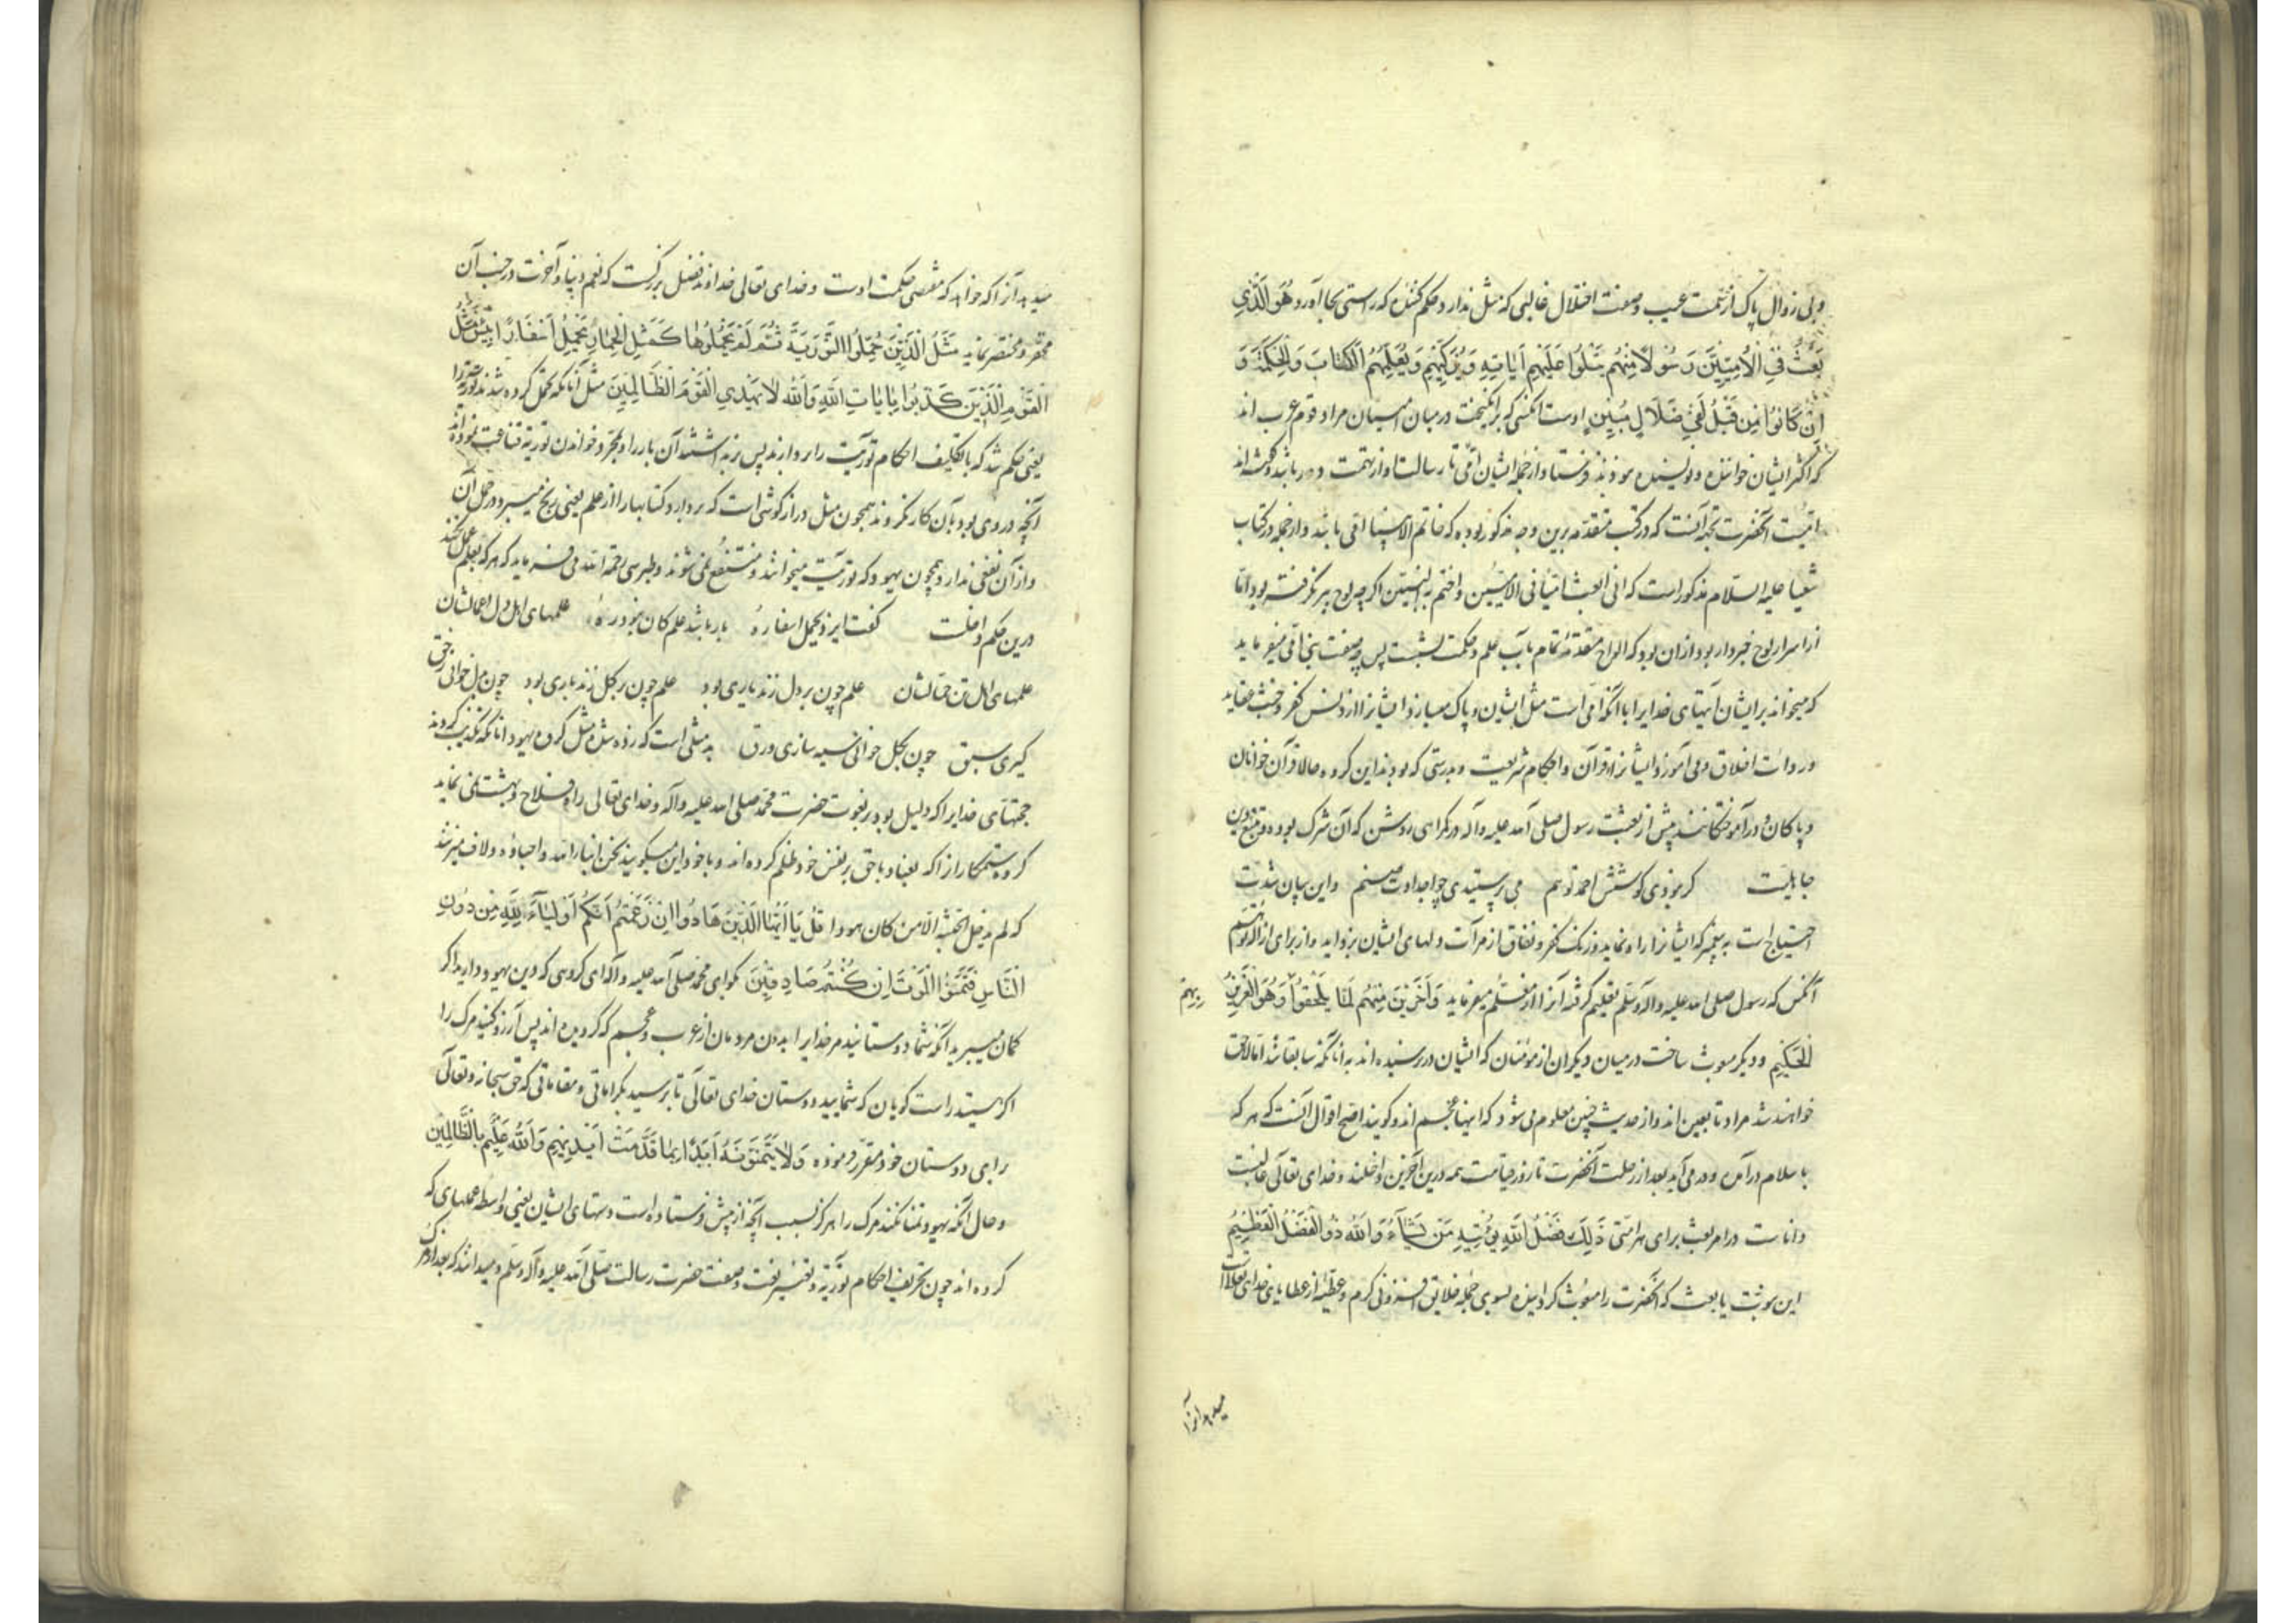 و بی زوال پاک از تهمت عیب و صفت اختلال غالبی که مثل ندارد و حکم کننده که راستی بجا آورد هُوَ الَّذِي
بَعَثَ فِي الْأُمِّيِّينَ رَسُولًا مِنْهُمْ يَتْلُوا عَلَيْهِمْ آيَاتِهِ وَيُزَكِّيهِمْ وَيُعَلِّمُهُمُ الْكِتَابَ وَالْحِكْمَةَ وَ
اِنْ كَانُوا مِنْ قَبْلُ لَفِي ضَلَالٍ مُبِينٍ اوست انکسی که برانگیخت در میان امیان مراد قوم عرب اند
که اکثر ایشان خواننده و نویسنده نبودند فرستاد از جمله ایشان امّی تا رسالت او از تهمت دور باشد و گفته اند
امّیت آنحضرت بجهة آنست که در کتب متقدمه برین وجه مذکور بوده که خاتم الانبیا امّی باشد و از جمله در کتاب
شعیا علیه السلام مذکور است که انی ابعث امّیا فی الامیّین و اختم به النبیّین اکرچه لوح بر نکرفته بود امّا
از اسرار لوح خبردار بود از ان بود که الواح متقدمه تمام بآب علم و حکمت بشست پس میفرماید
که میخواند بر ایشان آیتهای خدایرا با آنکه امّی است مثل ایشان و پاک میسازد ایشانرا از دنس کفر و خبث عقاید
و اخلاق و می آموزد ایشانرا قرآن و احکام شریعت و بدرستی که بودند این کروه حالا قرآن خوانان
و پاکان و در آموختکانند پیش از بعثت رسول صلی الله علیه و آله در کمراهی روشن که آن شرک بوده و تتبع دین
جاهلیت کر نبودی کوشش احمد تو هم می پرستیدی چو اجدادت صنم و این بیان شدّت
احتیاج است به پیغمبر که ایشانرا راه نماید و زنک کفر و نفاق از مرآت دلهای ایشان بزداید و از برای ازاله توهّم
آنکس که رسول صلی الله علیه و آله و سلم تعلیم کرفته آنرا از معلّم میفرماید وَآخَرِينَ مِنْهُمْ لَمَّا يَلْحَقُوا بِهِمْ وَهُوَ الْعَزِيزُ
الْحَكِيمُ و دیکر مبعوث ساخت در میان دیکران از مؤمنان که ایشان در نرسیده اند به آنانکه سابقا شد امّا لاحق
خواهند شد مراد تابعین اند و از حدیث چنین معلوم می شود که اینها عجم اند و کویند اصح اقوال آنست که هر که
باسلام درآمده و در می آید بعد از رحلت آنحضرت تا روز قیامت همه درین آخرین داخلند و خدای تعالی غالبست
و دانا ست در امر بعث برای هر امّتی ذَلِكَ فَضْلُ اللَّهِ يُؤْتِيهِ مَنْ يَشَآءُ وَاللَّهُ ذُو الْفَضْلِ الْعَظِيمِ
این نبوت یا بعث که آنحضرت را مبعوث کردانیده بسوی جمله خلایق فزونی کرم و عطیّه از عطایای خدای تعالی است
میدهد آنرا
میدهد آنرا که خواهد که مقتضی حکمت اوست و خدای تعالی خداوند فضل بزرکست که نعم دنیا و آخرت در جنب آن
محقّر و مختصر نماید مَثَلُ الَّذِينَ حُمِّلُوا التَّوْرَيةَ ثُمَّ لَمْ يَحْمِلُوهَا كَمَثَلِ الْحِمَارِ يَحْمِلُ اَسْفَارًا بِئْسَ مَثَلُ
الْقَوْمِ الَّذِينَ كَذَّبُوا بِآيَاتِ اللَّهِ وَاللَّهُ لَا يَهْدِي الْقَوْمَ الظَّالِمِينَ مثل آنانکه تحمل کرده شدند توریة را
یعنی حکم شد که باتکلیف احکام توریت را بردارند پس برنداشتند آن بار را و بمجرّد خواندن توریة قناعت نموده اند
آنچه در وی بود بآن کار نکردند همچون مثل دراز کوشی است که بردارد کتابها را از علم یعنی رنج میبرد در حمل آن
و از آن نفعی ندارد همچون یهود که توریت میخوانند و منتفع نمی شوند و طبرسی رحمه الله می فرماید که هر که بعلم عمل نکند
درین حکم داخلست گفت ایزد یحمل اسفاره بار باشد علم کان نبود ز هو علمهای اهل دل حمالشان
علمهای اهل تن احمالشان علم چون بر دل زند یاری بود علم چون بر کل زند باری بود چون بدل خوانی ز حق
کیری سبق چون بکل خوانی سیه سازی ورق بد مثلی است که زده شده مثل کروه یهود آنانکه تکذیب کردند
حجتهای خدایرا که دلیل بود بر نبوت حضرت محمّد صلی الله علیه و آله و خدای تعالی راه فلاح و بهشت نمی نماید
کروه ستمکارانرا که بعناد با حق بر نفس خود ظلم کرده اند و با خود این میکویند نحن ابناء الله و احباؤه و لاف میزنند
که لم یدخل الجنّة الّا من کان هودا قُلْ يَا أَيُّهَا الَّذِينَ هَادُوا اِنْ زَعَمْتُمْ اَنَّكُمْ اَوْلِيَآءُ لِلَّهِ مِنْ دُونِ
النَّاسِ فَتَمَنَّوُا الْمَوْتَ اِنْ كُنْتُمْ صَادِقِينَ بکو ای محمّد صلی الله علیه و آله ای کروهی که دین یهود دارید اکر
کمان میبرید آنکه شما دوستانید مر خدایرا بدون مردمان از عرب و عجم که کرویده اند پس آرزو کنید مرک را
اکر هستید راست کویان که شمایید دوستان خدای تعالی تا برسید بکراماتی و مقاماتی که حق سبحانه و تعالی
برای دوستان خود مقرّر فرموده وَلَا يَتَمَنَّوْنَهُ اَبَدًا بِمَا قَدَّمَتْ اَيْدِيهِمْ وَاللَّهُ عَلِيمٌ بِالظَّالِمِينَ
و حال آنکه یهود تمنا نکنند مرک را هرکز بسبب آنچه از پیش فرستاده است دستهای ایشان یعنی واسطه عملهای که
کرده اند چون تحریف احکام توریة و تغییر نعت و صفت حضرت رسالت صلی الله علیه و آله و سلّم و میدانند که بعد از مرک